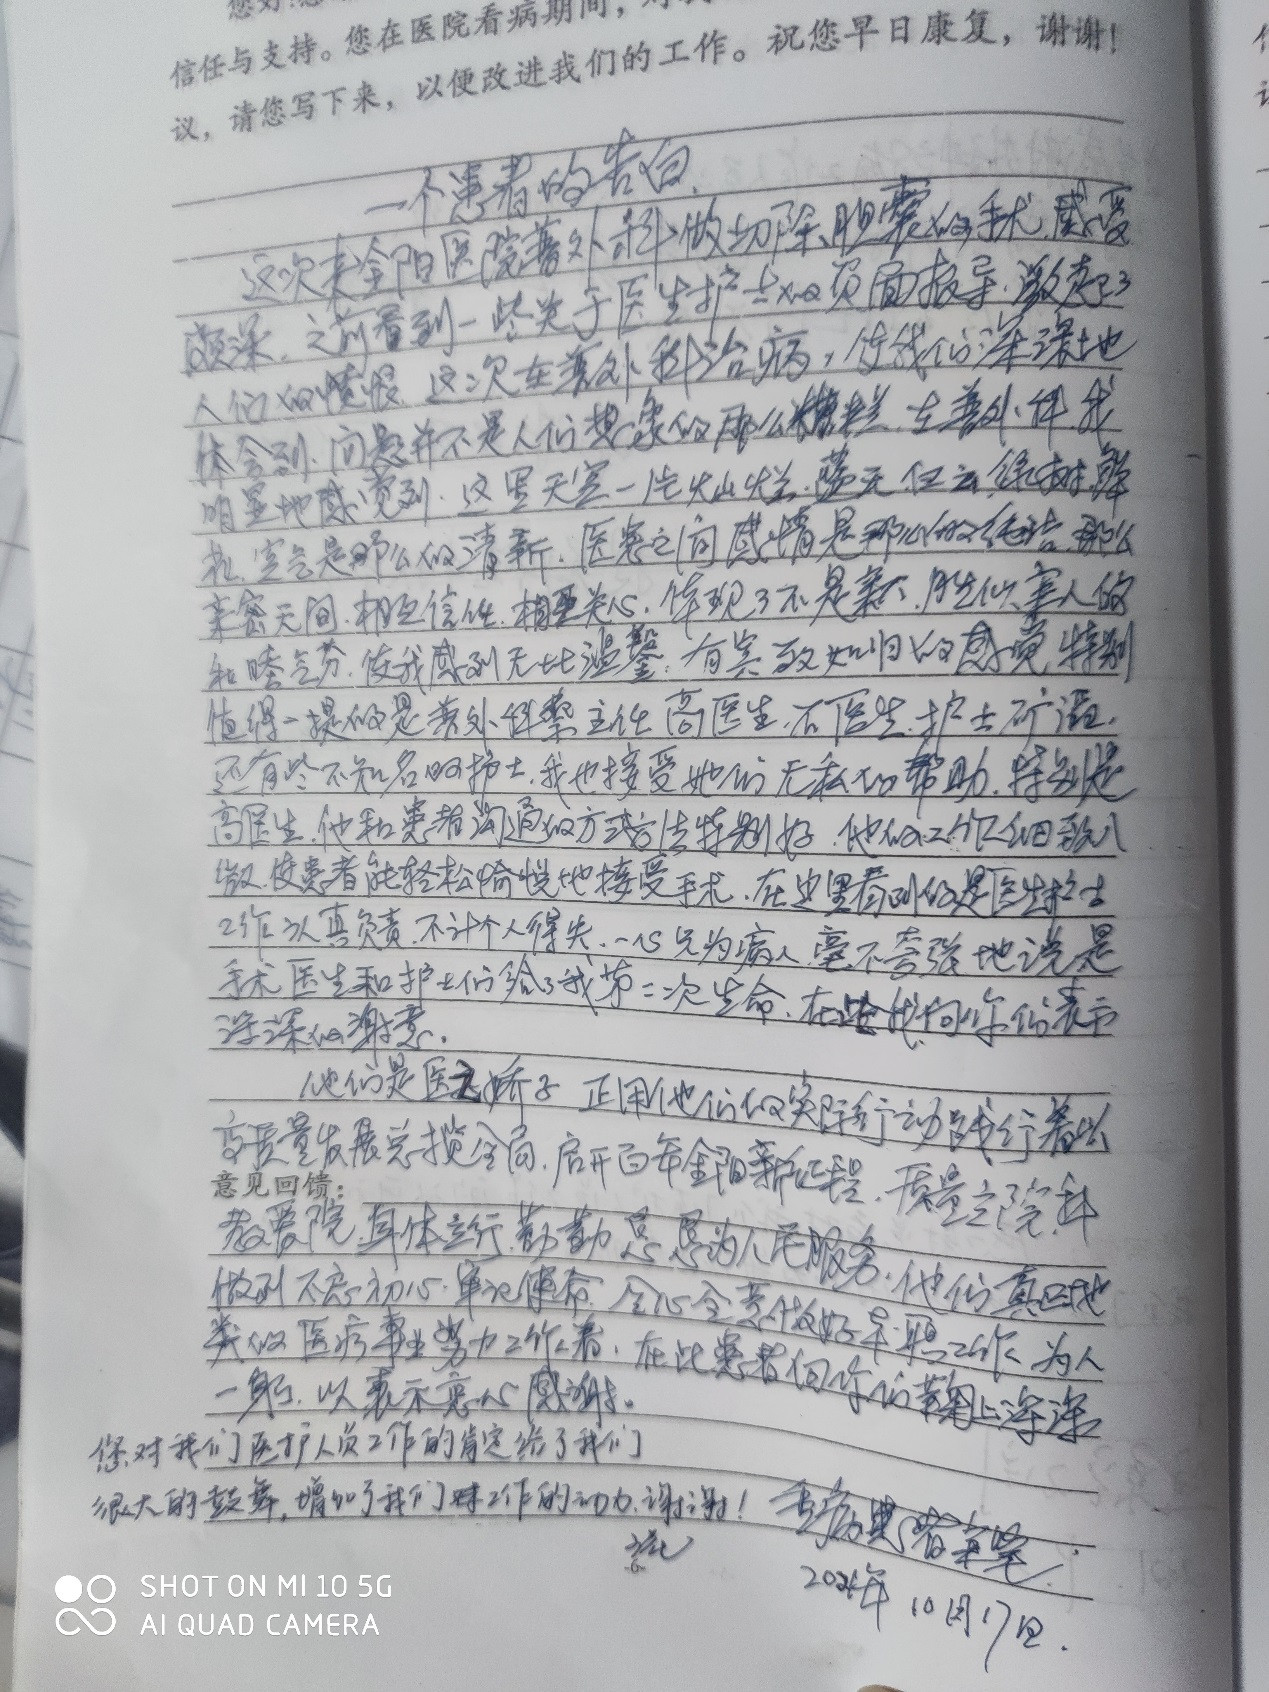 信任与支持。您在医院看病期间，对我
议，请您写下来，以便改进我们的工作。祝您早日康复，谢谢！
一个患者的告白
这次来金阳医院普外科做切除胆囊的手术，感受
颇深，之前看到一些关于医生护士的负面报导，激起了
人们的愤恨，这次在普外科治病，使我们深深地
体会到，问题并不是人们想象的那么糟糕，在普外科，我
明显地感觉到，这里天空一片灿烂，蓝天白云，绿树鲜
花，空气是那么的清新，医患之间感情是那么的纯洁，那么
亲密无间，相互信任，相互关心，体现了不是亲人，胜似亲人的
和睦气芬，使我感到无比温馨，有宾致如归的感觉，特别
值得一提的是普外科黎主任，高医生，石医生，护士
还有些不知名的护士，我也接受她们无私的帮助，特别是
高医生，他和患者沟通的方式方法特别好，他的工作细致入
微，使患者能轻松愉悦地接受手术，在这里看到的是医生护士
工作认真负责，不计个人得失，一心只为病人，毫不夸张地说是
手术医生和护士们给了我第二次生命，在此我向你们表示
深深的谢意。
他们是医之娇子，正用他们的实际行动践行着以
高质量发展总揽全局，启开百年金阳新征程，质量立院，科
意见回馈：
教爱院，具体立行，勤勤恳恳为人民服务，他们真正地
做到不忘初心，牢记使命，全心全意做好本职工作，为人
类的医疗事业努力工作着，在此患者向你们鞠上深深
一躬，以表示衷心感谢。
您对我们医护人员工作的肯定给了我们
很大的鼓舞，增加了我们对工作的动力，谢谢！
10月17日.
SHOT ON MI 10 5G
AI QUAD CAMERA